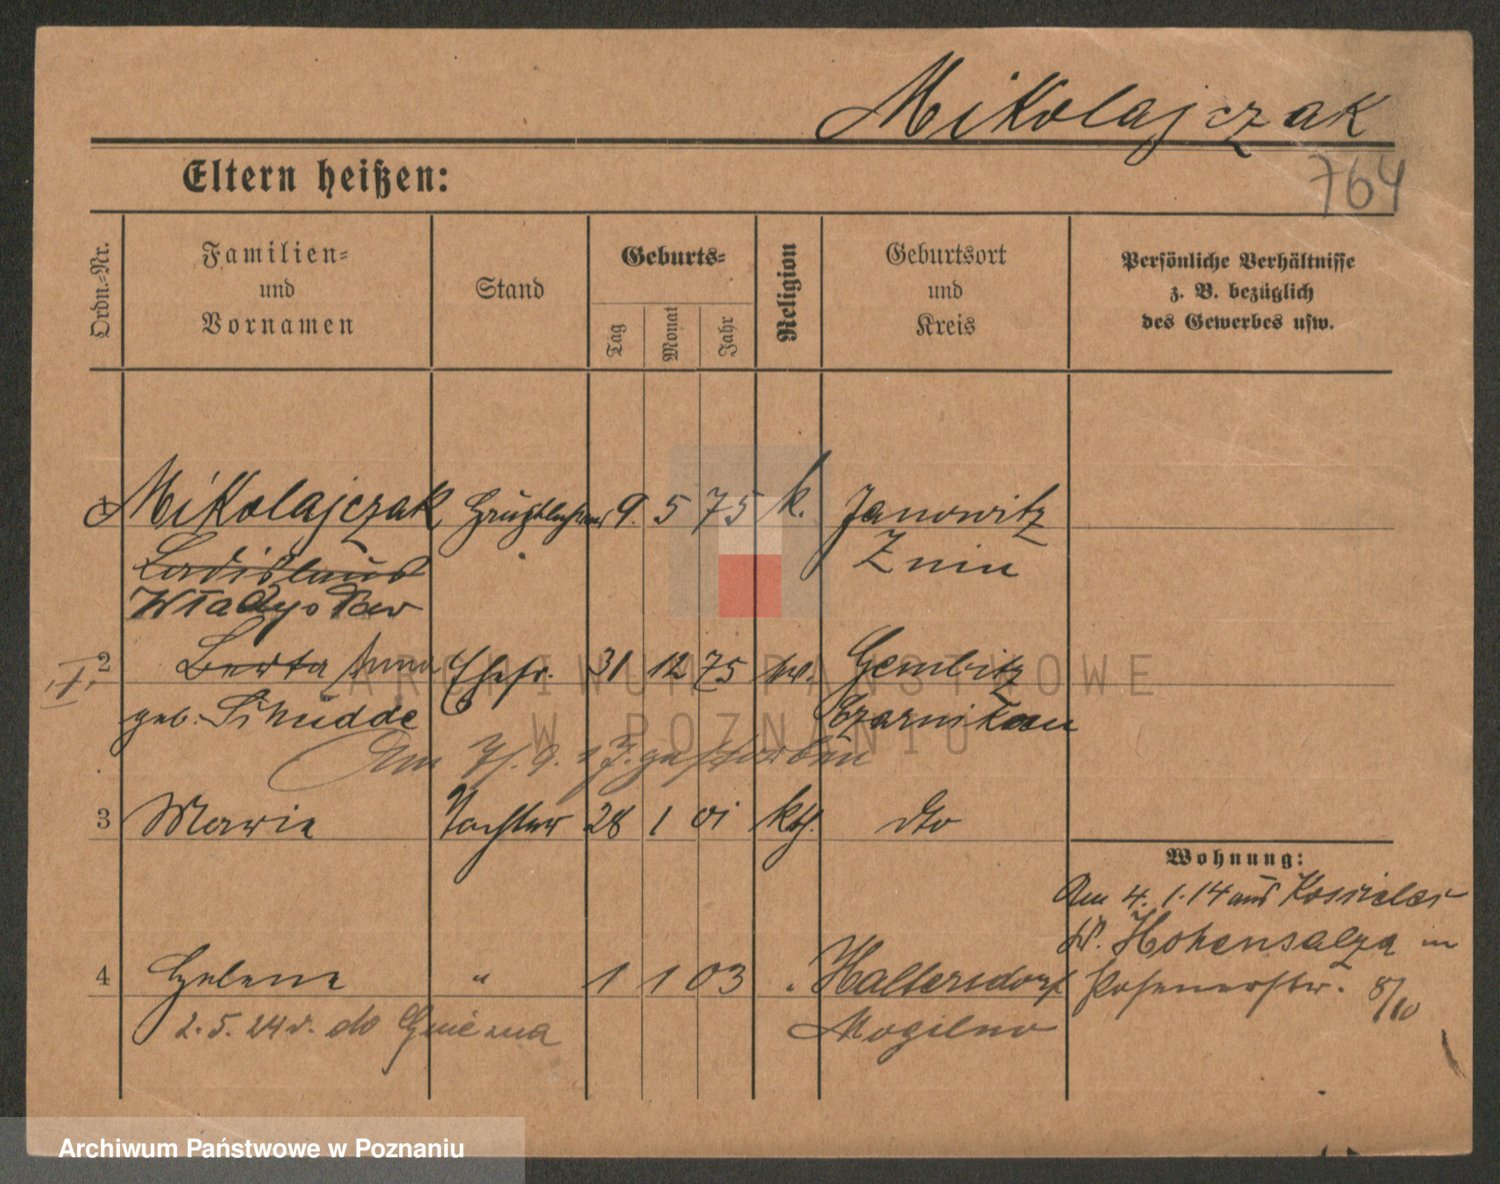 Mikolajczak
764
Eltern heißen:
Ordn.-Nr.
Familien-
und
Vornamen
Stand
Geburts-
Tag
Monat
Jahr
Religion
Geburtsort
und
Kreis
Persönliche Verhältnisse
z. B. bezüglich
des Gewerbes usw.
1 Mikolajczak 9. 5 75 k. Janowitz
Ladislaus Znin
Władysław
2 Berta Anna Ehefr. 31 12 75 Gembitz
geb. Czarnikau
Am gestorben
3 Marie Tochter 28 1 01 kth. dto
Wohnung:
Am 4. 1. 14 aus
Kr. Hohensalza in
4 Helene " 1 1 03 " Haltersdorf Posenerstr. 8/10
2. 5. 24 r. do Gniezna Mogilno
ARCHIWUM PAŃSTWOWE
W POZNANIU
Archiwum Państwowe w Poznaniu